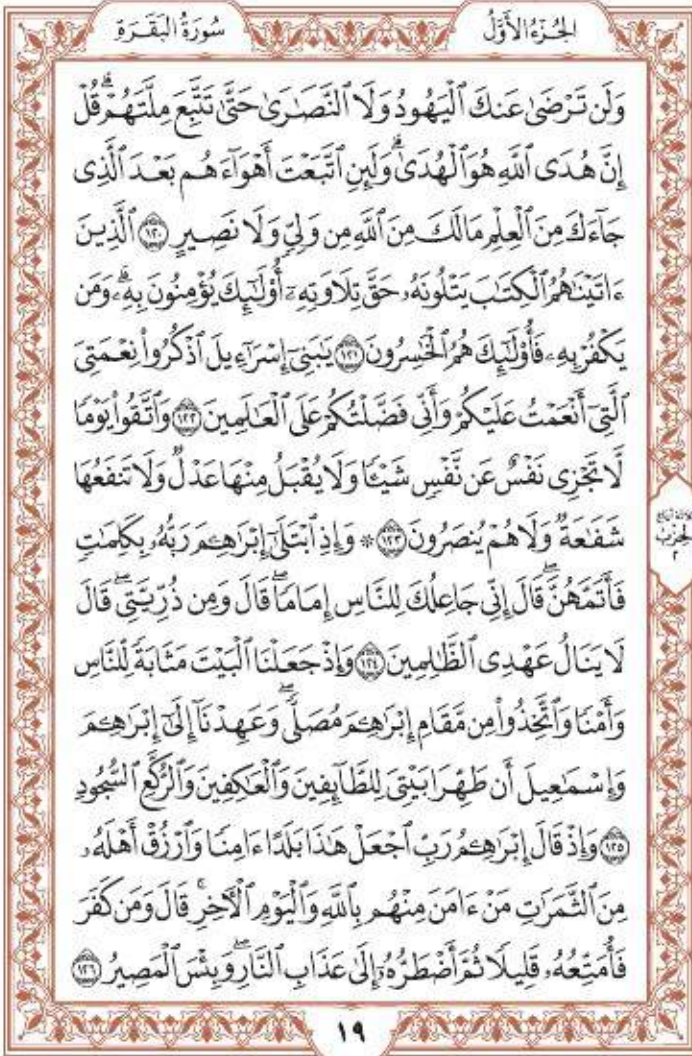 سُورَةُ الْبَقَرَةِ
الجُزْءُ الأَوَّلُ
وَلَن تَرْضَىٰ عَنكَ ٱلْيَهُودُ وَلَا ٱلنَّصَٰرَىٰ حَتَّىٰ تَتَّبِعَ مِلَّتَهُمْۗ قُلْ
إِنَّ هُدَى ٱللَّهِ هُوَ ٱلْهُدَىٰۗ وَلَئِنِ ٱتَّبَعْتَ أَهْوَآءَهُم بَعْدَ ٱلَّذِى
جَآءَكَ مِنَ ٱلْعِلْمِ مَا لَكَ مِنَ ٱللَّهِ مِن وَلِىٍّ وَلَا نَصِيرٍ ١٢٠ ٱلَّذِينَ
ءَاتَيْنَٰهُمُ ٱلْكِتَٰبَ يَتْلُونَهُۥ حَقَّ تِلَاوَتِهِۦٓ أُو۟لَٰٓئِكَ يُؤْمِنُونَ بِهِۦۗ وَمَن
يَكْفُرْ بِهِۦ فَأُو۟لَٰٓئِكَ هُمُ ٱلْخَٰسِرُونَ ١٢١ يَٰبَنِىٓ إِسْرَٰٓءِيلَ ٱذْكُرُوا۟ نِعْمَتِىَ
ٱلَّتِىٓ أَنْعَمْتُ عَلَيْكُمْ وَأَنِّى فَضَّلْتُكُمْ عَلَى ٱلْعَٰلَمِينَ ١٢٢ وَٱتَّقُوا۟ يَوْمًا
لَّا تَجْزِى نَفْسٌ عَن نَّفْسٍ شَيْـًٔا وَلَا يُقْبَلُ مِنْهَا عَدْلٌ وَلَا تَنفَعُهَا
شَفَٰعَةٌ وَلَا هُمْ يُنصَرُونَ ١٢٣ ۞ وَإِذِ ٱبْتَلَىٰٓ إِبْرَٰهِـۧمَ رَبُّهُۥ بِكَلِمَٰتٍ
فَأَتَمَّهُنَّۖ قَالَ إِنِّى جَاعِلُكَ لِلنَّاسِ إِمَامًاۖ قَالَ وَمِن ذُرِّيَّتِىۖ قَالَ
لَا يَنَالُ عَهْدِى ٱلظَّٰلِمِينَ ١٢٤ وَإِذْ جَعَلْنَا ٱلْبَيْتَ مَثَابَةً لِّلنَّاسِ
وَأَمْنًا وَٱتَّخِذُوا۟ مِن مَّقَامِ إِبْرَٰهِـۧمَ مُصَلًّىۖ وَعَهِدْنَآ إِلَىٰٓ إِبْرَٰهِـۧمَ
وَإِسْمَٰعِيلَ أَن طَهِّرَا بَيْتِىَ لِلطَّآئِفِينَ وَٱلْعَٰكِفِينَ وَٱلرُّكَّعِ ٱلسُّجُودِ
١٢٥ وَإِذْ قَالَ إِبْرَٰهِـۧمُ رَبِّ ٱجْعَلْ هَٰذَا بَلَدًا ءَامِنًا وَٱرْزُقْ أَهْلَهُۥ
مِنَ ٱلثَّمَرَٰتِ مَنْ ءَامَنَ مِنْهُم بِٱللَّهِ وَٱلْيَوْمِ ٱلْءَاخِرِۚ قَالَ وَمَن كَفَرَ
فَأُمَتِّعُهُۥ قَلِيلًا ثُمَّ أَضْطَرُّهُۥٓ إِلَىٰ عَذَابِ ٱلنَّارِۖ وَبِئْسَ ٱلْمَصِيرُ ١٢٦
الحِزْب
٢
١٩